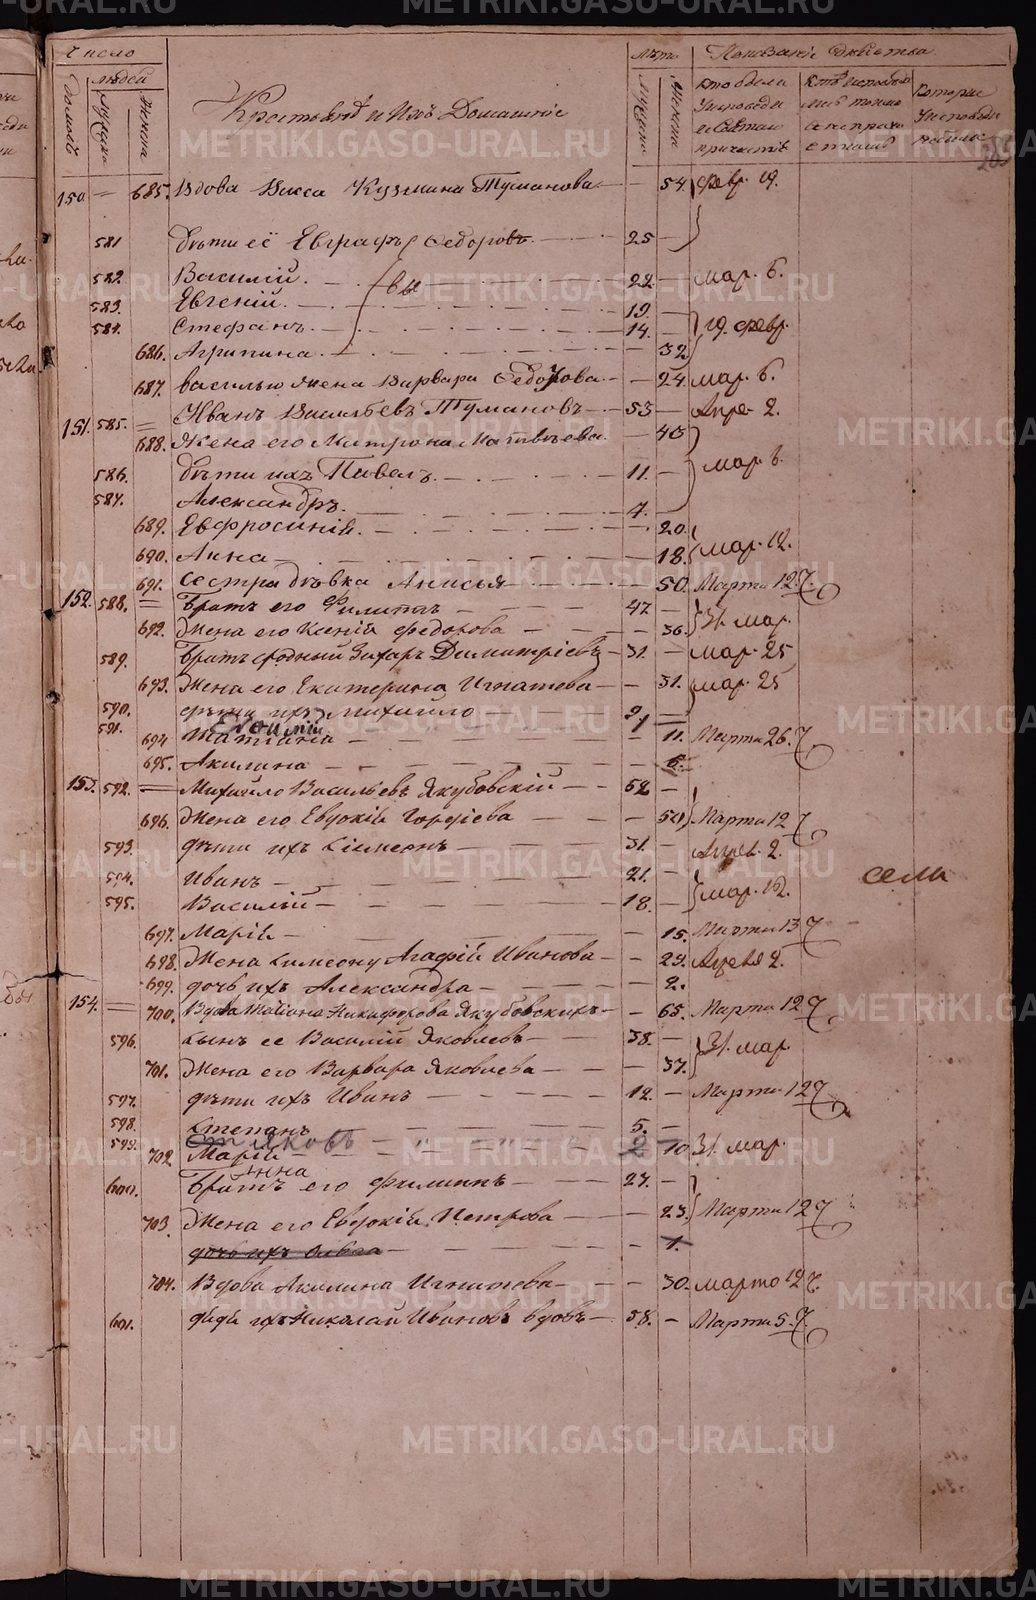 Число
людей
Лѣта
Показанiе дѣйства
домовъ
Мужска
Женска
Крестьянѣ и Ихъ Домашнiе
Мужеска
Женска
кто были у исповѣди и Святаго причастiя
Которые у исповѣди небыли
150. — 685. Вдова Васса Кузмина Туманова — 54. февр. 19.
581 дѣти её Евграфъ Федоровъ 25 —
582. Василiй. вы 22 — мар. 6.
583. Евгенiй. 19. —
584. Стефанъ. 14. — 19. февр.
686. Агрипина. — 32
687. василью жена Варвара Федорова — 24 мар. 6.
151. 585. Иванъ Васильевъ Тумановъ 53 — Апре. 2.
688. Жена его Матрона Матвѣева. — 45
586. дѣти ихъ Павелъ. 11. — мар. 6.
587. Александръ. 7. —
689. Евфросинiя. — 20.
690. Анна — 18. мар. 12.
691. сестра дѣвка Анисья — 50. Марта 12.
152. 588. братъ его Филиппъ 47. — 31. мар.
692. Жена его Ксенiя Федорова — 36.
589. братъ родный Захаръ Димитрiевъ 31. — мар. 25
693. Жена его Екатерина Игнатова — 31. мар. 25
590. дѣти ихъ Михайло —
591.
694 Татiана — 11. Марта 26.
695. Акилина — 6.
153. 592. Михайло Васильевъ Якубовскiй 52 —
696. Жена его Евдокiя Гордiева — 50 Марта 12
593. дѣти ихъ Симеонъ 31. — Апрел. 2.
594. Иванъ 21. —
595. Василiй 18. — мар. 12.
села
697. Марiя — 15. Марта 13
698. Жена Симеону Агафiя Иванова — 29. Апреля 2.
699. дочь ихъ Александра — 2.
154. — 700. Вдова Татiана Никифорова Якубовскихъ — 65. Марта 12
596. сынъ ее Василiй Яковлевъ 38. — 31. мар.
701. Жена его Варвара Яковлева — 37.
597. дѣти ихъ Иванъ 12. — Марта 12
598. Степанъ 5. —
599. Яковъ 2
702. Марiя — 10 31. мар.
Анна
600. братъ его Филиппъ 27. —
703. Жена его Евдокiя Петрова — 23. Марта 12
дочь ихъ Ольга — 1.
704. Вдова Акилина Игнатева — 30. марта 12
601. дядя ихъ Николай Ивановъ вдовъ 58. — Марта 5.
METRIKI.GASO-URAL.RU